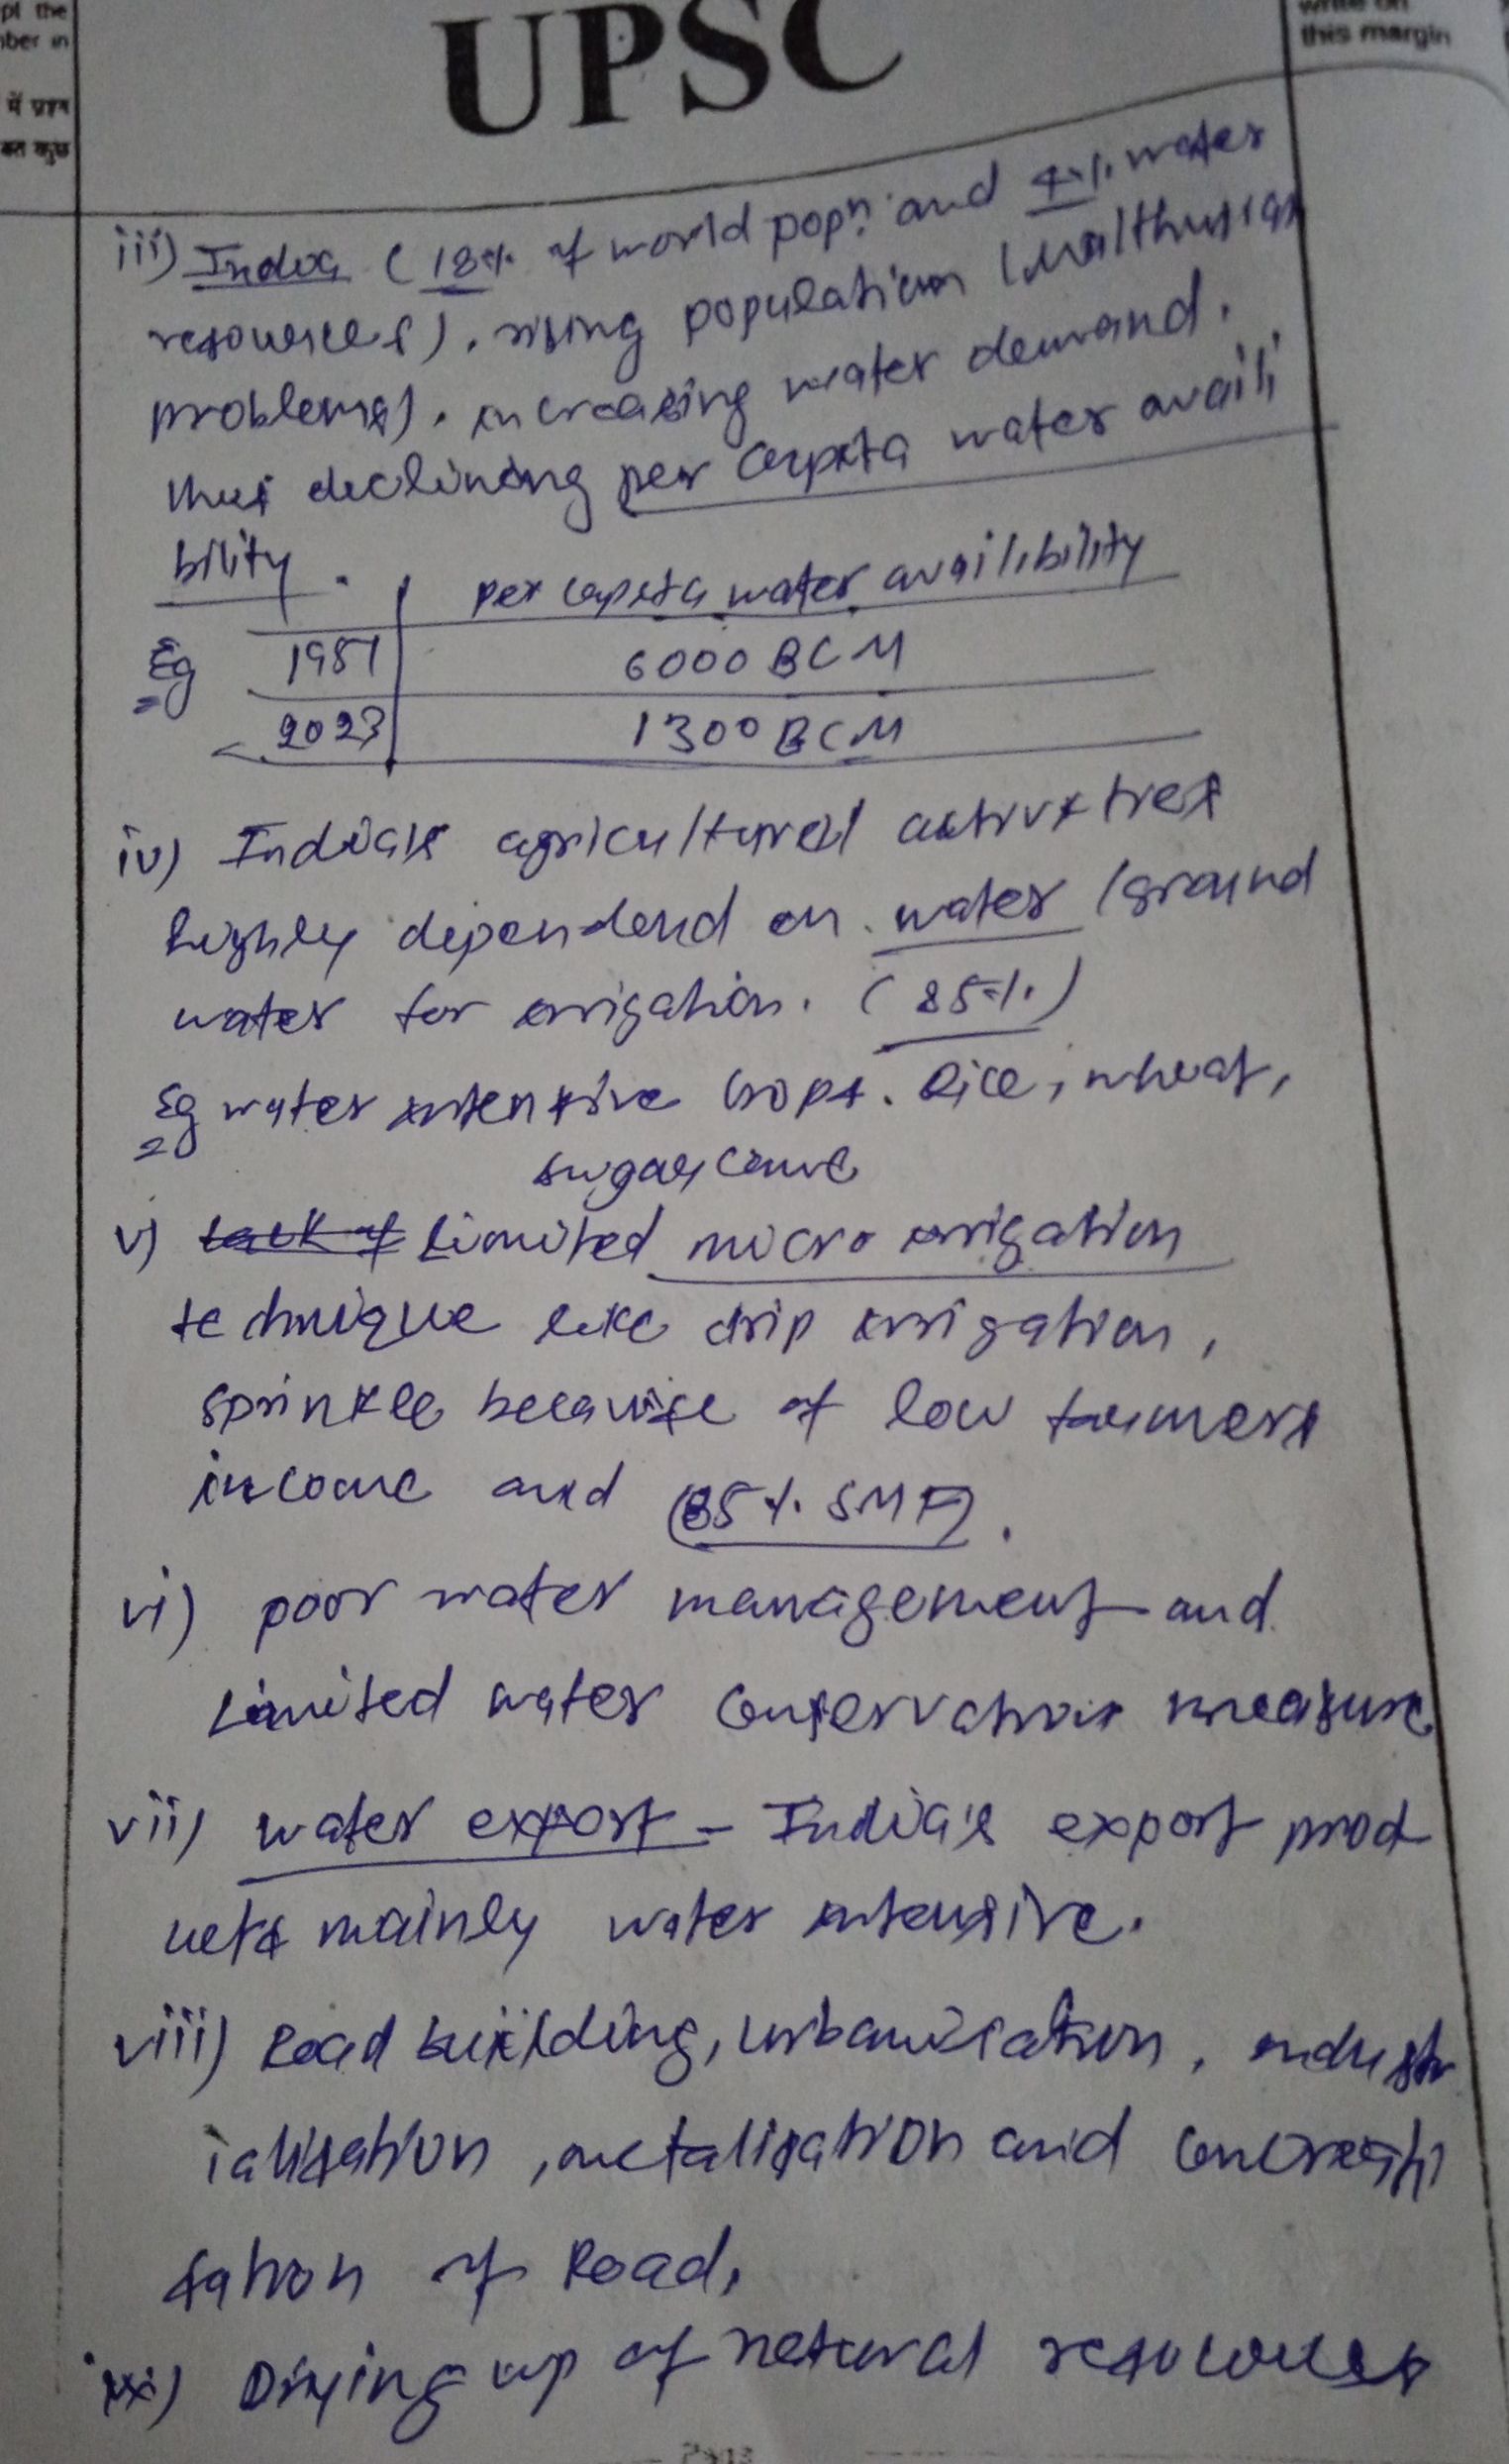 pt the
ber in
में प्रश्न
कुछ
UPSC
write on
this margin
iii) India (18% of world popn. and 4% water
resources), rising population (Malthusian
problems), increasing water demand.
thus declining per capita water avail
bility.
per capita water availibility
Eg 1951 6000 BCM
2023 1300 BCM
iv) India's agricultural activities
highly dependend on water / ground
water for irrigation. (85%)
Eg water intensive crops. Rice, wheat,
sugarcane
v) Lack of Limited micro irrigation
technique like drip irrigation,
sprinkle because of low farmers
income and (85% SMF).
vi) poor water management and
Limited water conservation measure
vii) water export - India's export prod
ucts mainly water intensive.
viii) Road building, urbanisation, industr
ialisation, metalisation and
sation of Road,
ix) Drying up of natural resources